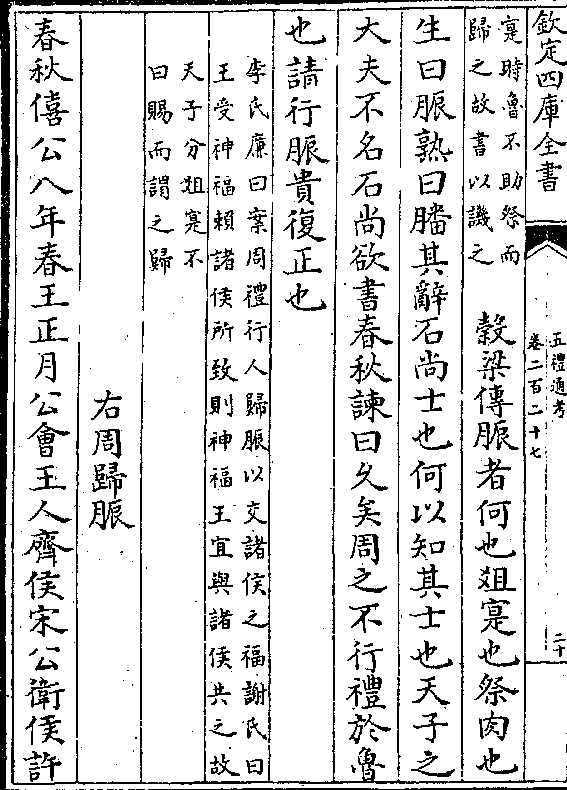 欽定四庫全書
五禮通考
卷二百二十七
二十
寔時魯不助祭而
歸之故書以譏之
榖梁傳脤者何也俎寔也祭肉也
生曰脤熟曰膰其辭石尚士也何以知其士也天子之
大夫不名石尚欲書春秋諫曰久矣周之不行禮於魯
也請行脤貴復正也
李氏廉曰案周禮行人歸脤以交諸侯之福謝氏曰
王受神福賴諸侯所致則神福王宜與諸侯共之故
天子分俎寔不
曰賜而謂之歸
右周歸脤
春秋僖公八年春王正月公會王人齊侯宋公衛侯許